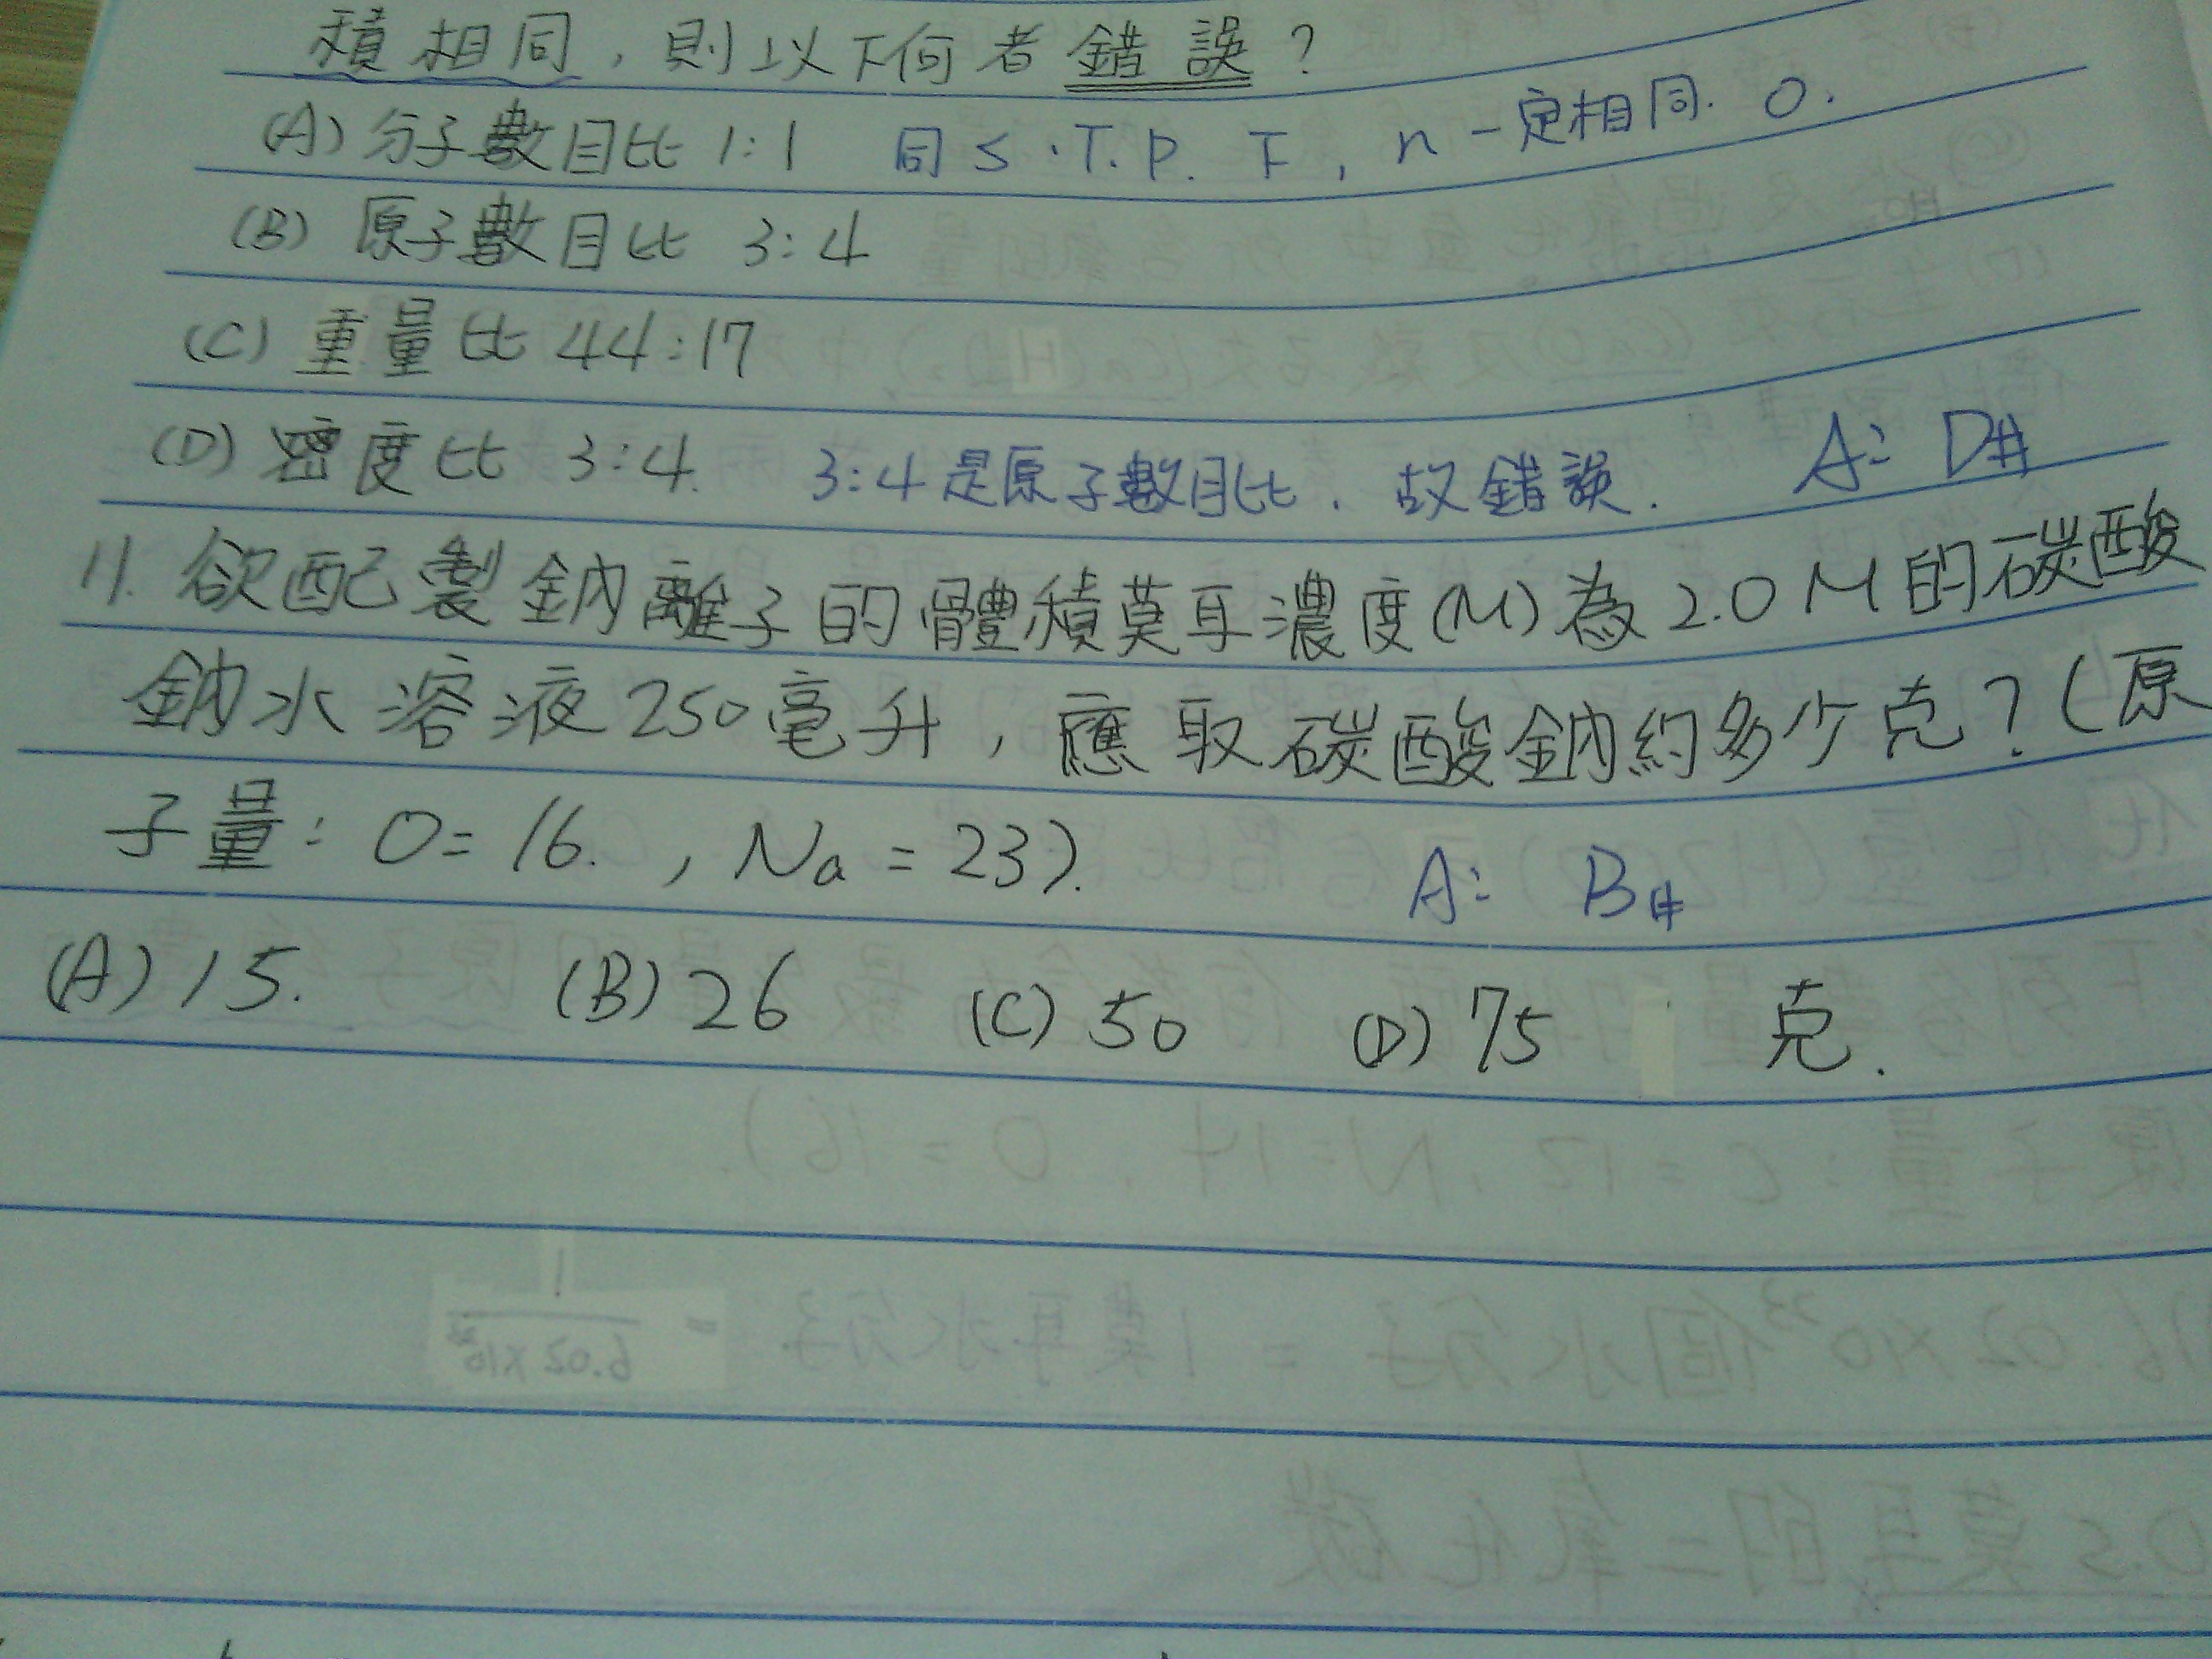 積相同，則以下何者錯誤？
(A) 分子數目比 1:1 同 S.T.P. 下，n 一定相同. O.
(B) 原子數目比 3:4
(C) 重量比 44:17
(D) 密度比 3:4. 3:4 是原子數目比，故錯誤. A: D#
11. 欲配製鈉離子的體積莫耳濃度(M)為2.0M的碳酸
鈉水溶液250毫升，應取碳酸鈉約多少克？(原
子量: O=16. , Na=23).
A: B#
(A) 15. (B) 26 (C) 50 (D) 75 克.